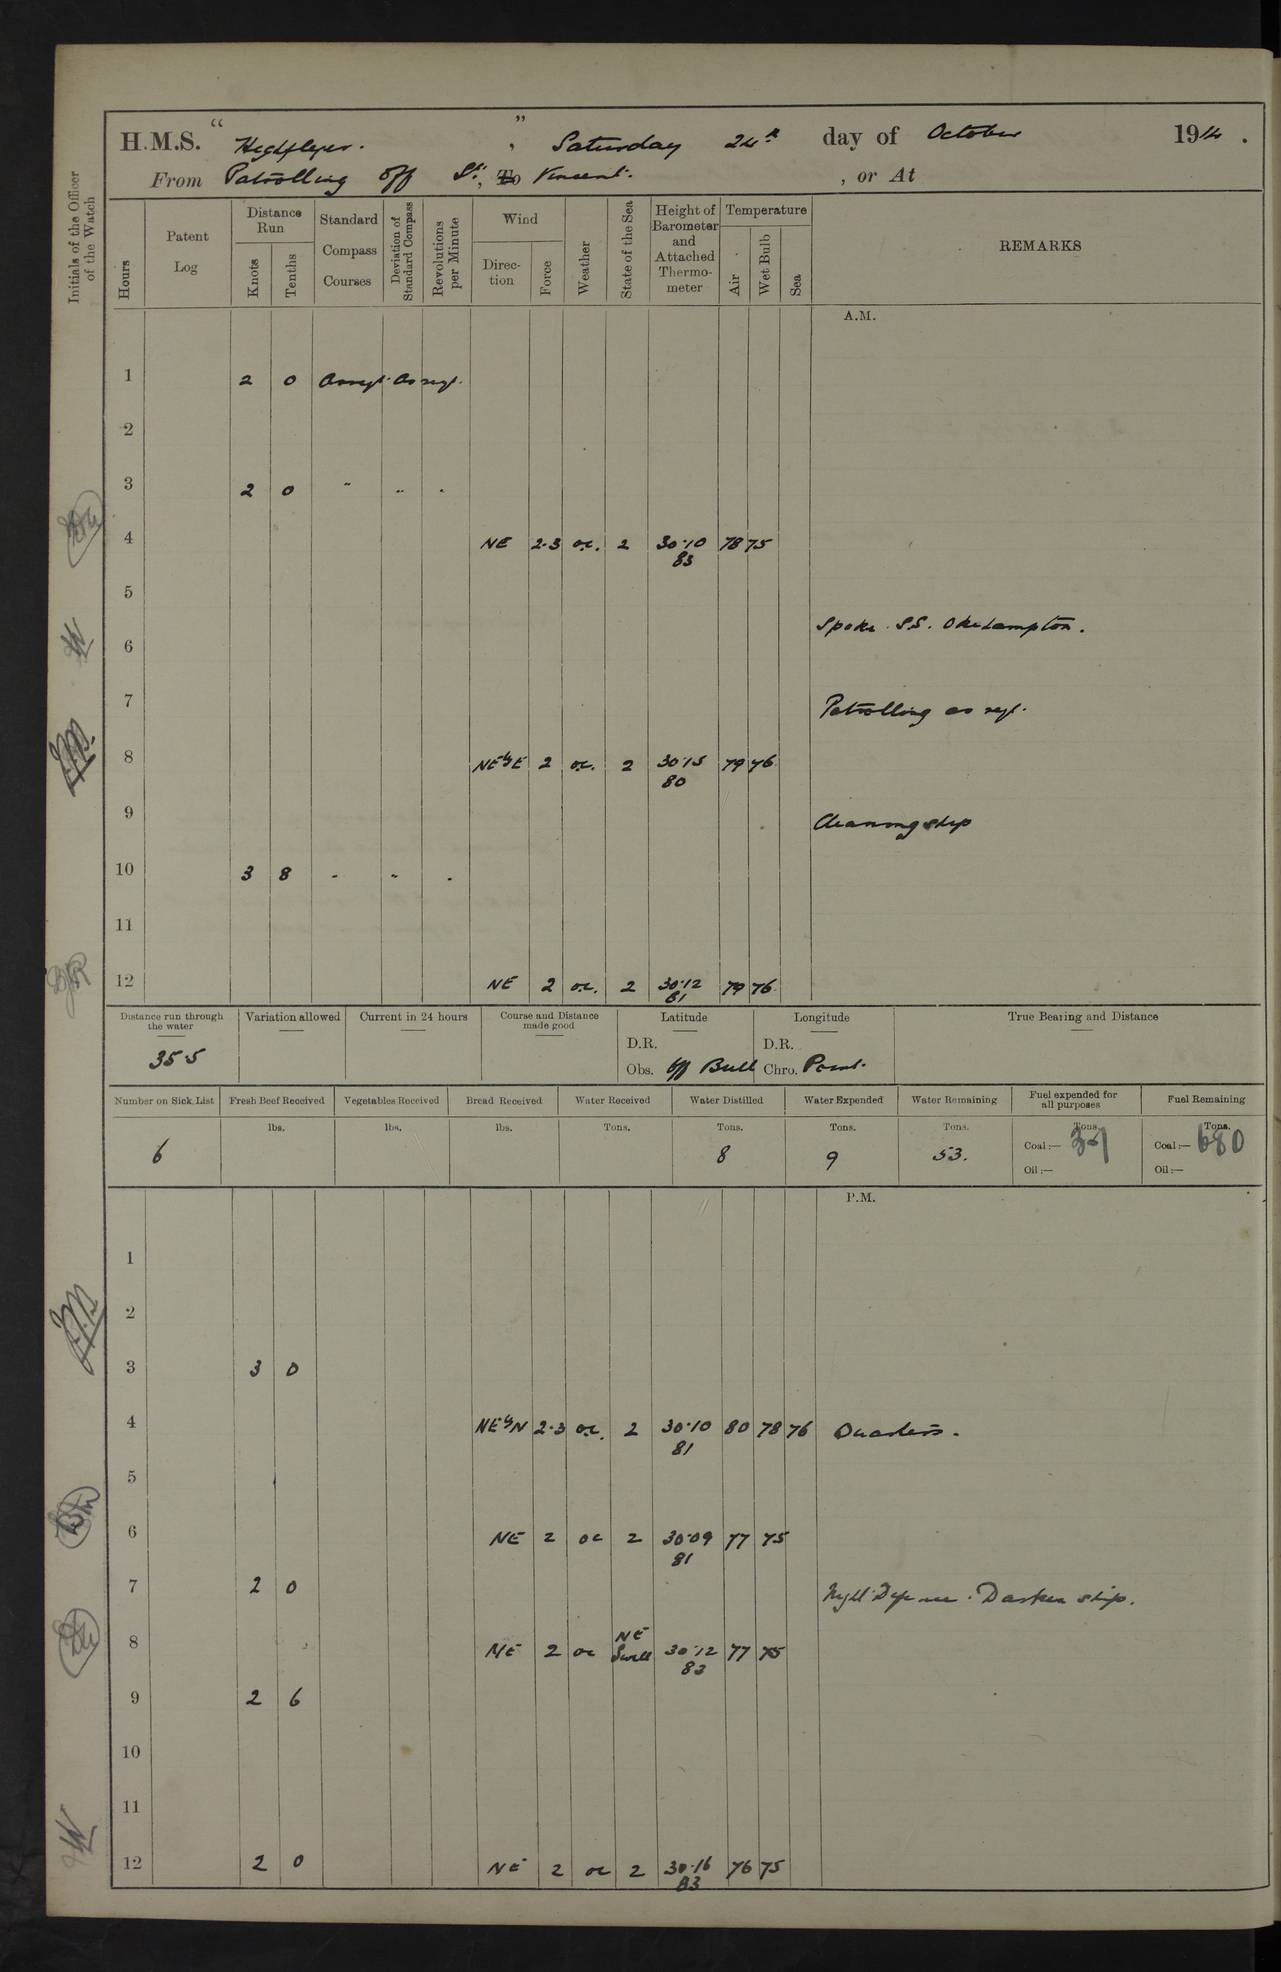 H.M.S. "Highflyer.", Saturday 24th day of October 1914.
From Patrolling off St, To Vincent. , or At
Initials of the Officer of the Watch
Hours
Patent Log
Distance Run
Knots
Tenths
Standard Compass Courses
Deviation of Standard Compass
Revolutions per Minute
Wind
Direction
Force
Weather
State of the Sea
Height of Barometer and Attached Thermometer
Temperature
Air
Wet Bulb
Sea
REMARKS
A.M.
1 2 0 As reqt. As reqt.
2
3 2 0 " " "
4 NE 2.3 o.c. 2 30.10 78 75
83
5
Spoke S.S. Okehampton.
6
7 Patrolling as reqt.
8 NEbyE 2 o.c. 2 30.15 79 76
80
9 Cleaning ship
10 3 8 " " "
11
12 NE 2 o.c. 2 30.12 79 76
81
Distance run through the water
Variation allowed
Current in 24 hours
Course and Distance made good
Latitude
Longitude
True Bearing and Distance
35.5
D.R. D.R.
Obs. off Bull Chro. Point.
Number on Sick List
Fresh Beef Received
Vegetables Received
Bread Received
Water Received
Water Distilled
Water Expended
Water Remaining
Fuel expended for all purposes
Fuel Remaining
lbs. lbs. lbs. Tons. Tons. Tons. Tons. Tons. Tons.
6 8 9 53. Coal:— Coal:— 680
Oil:— Oil:—
P.M.
1
2
3 3 0
4 NEbyN 2.3 o.c. 2 30.10 80 78 76 Quarters.
81
5
6 NE 2 oc 2 30.09 77 75
81
7 2 0 Night Defence. Darken ship.
8 NE 2 oc NE Swell 30.12 77 75
83
9 2 6
10
11
12 2 0 NE 2 oc 2 30.16 76 75
83